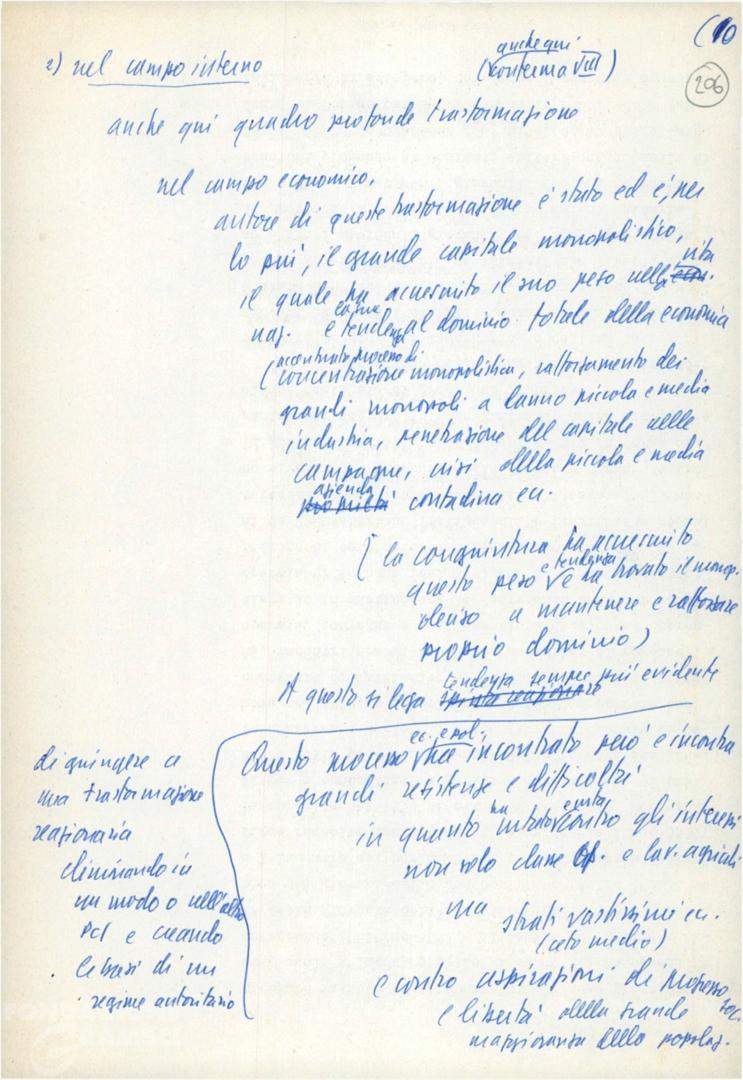 (10
206
2) nel campo interno
anche qui
(conferma VIII)
anche qui quadro profonde trasformazione
nel campo economico.
autore di queste trasformazione è stato ed è, per
lo più, il grande capitale monopolistico,
il quale ha accresciuto il suo peso nella vita
naz. e tende al dominio totale della economia
(accentuato processo di
concentrazione monopolistica, rafforzamento dei
grandi monopoli a danno piccola e media
industria, penetrazione del capitale nelle
campagne, crisi della piccola e media
azienda contadina ecc.
(la congiuntura ha accresciuto
questo peso e tendenza e ha trovato il monop.
deciso a mantenere e rafforzare
proprio dominio)
A questo si lega tendenza sempre più evidente
di giungere a
una trasformazione
reazionaria
eliminando in
un modo o nell'altro
PCI e creando
le basi di un
regime autoritario
Questo processo ec. e pol. ha incontrato però e incontra
grandi resistenze e difficoltà
in quanto ha urtato e urta contro gli interessi
non solo classe op. e lav. agricoli
ma strati vastissimi ec.
(ceto medio)
e contro aspirazioni di progresso soc.
e libertà della grande
maggioranza della popolaz.